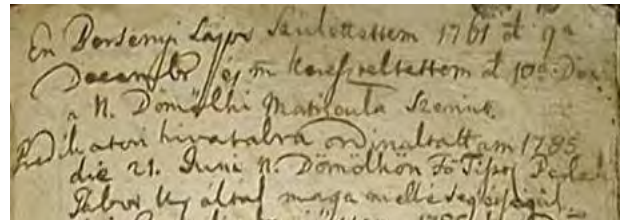 En Bersenyi Lajos Születettem 1761 dt 9a
Decembr éj m Kereszteltettem dt 10a Dec.
a N. Dömölki Matricula Szerint.
Prédikatori hivatalra ordinaltattam 1785
die 21. Juni N. Dömölkön Fő Tiszt Perlaki
Gábor Ur által maga mellé segítségül